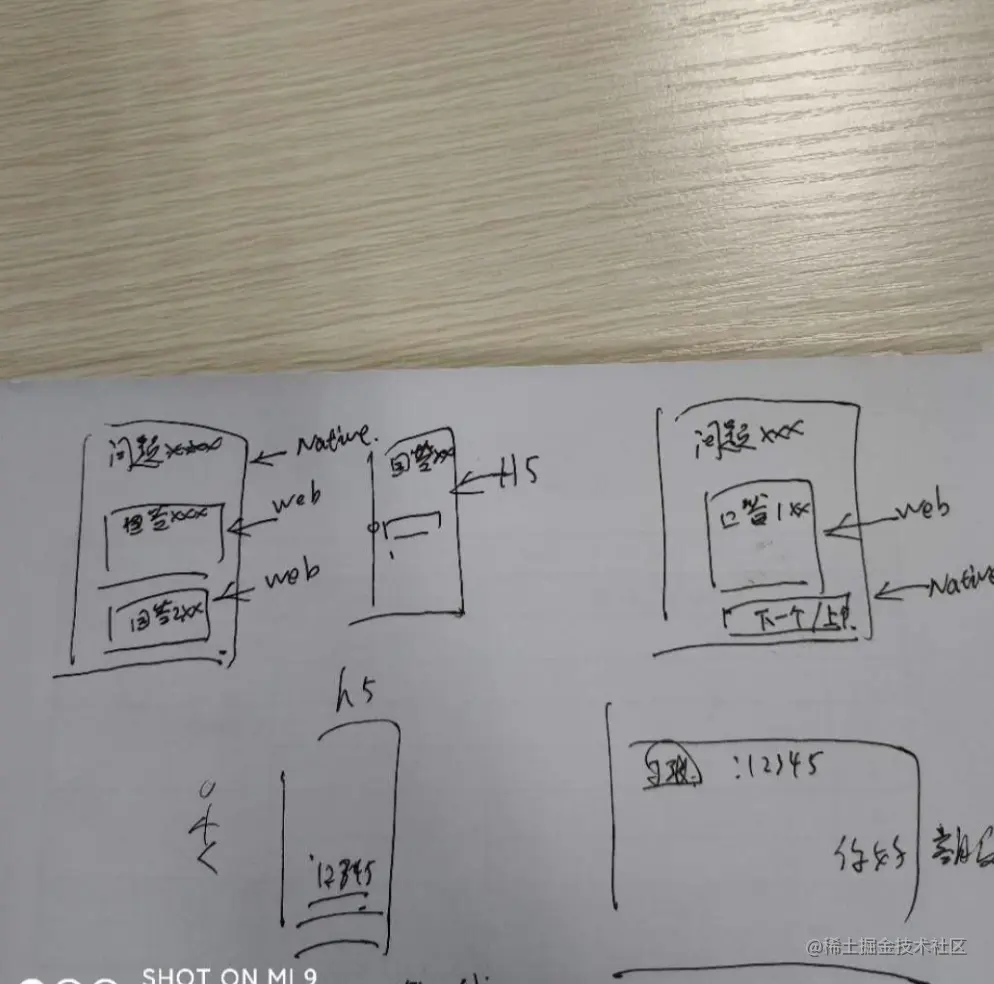 问题xxxx
Native.
回答xxx
web
回答2xx
web
回答xx
H5
问题xxx
回答1xx
web
下一个/上个
Native
h5
:12345
:12345
你好
@稀土掘金技术社区
SHOT ON MI 9